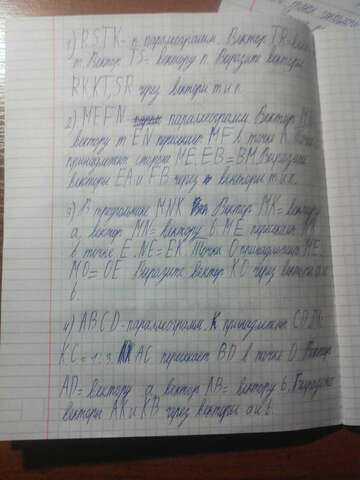 1) RSTK- параллограмм. Вектор TR=
m. Вектор TS= вектору n. Выразите векторы
RK, KT, SR через векторы m и n.
2) MEFN параллограмм Вектор
вектору m. EN пересекает MF в точке A
принадлежит стороне ME, EB=BM. Выразите
векторы EA и FB через векторы m и
3) В треугольнике MNK Вектор MK= вектору
a, вектор MN= вектору b. ME пересекает
в точке E. NE=EK. Точка O принадлежит ME,
MO=OE Выразите вектор KO через векторы a и
b
4) ABCD-параллограмм. K принадлежит CB
KC=1:3. AC пересекает BD в точке O. Вектор
AD= вектору a, вектор AB= вектору b. Выразите
векторы AK и KB через векторы a и b.